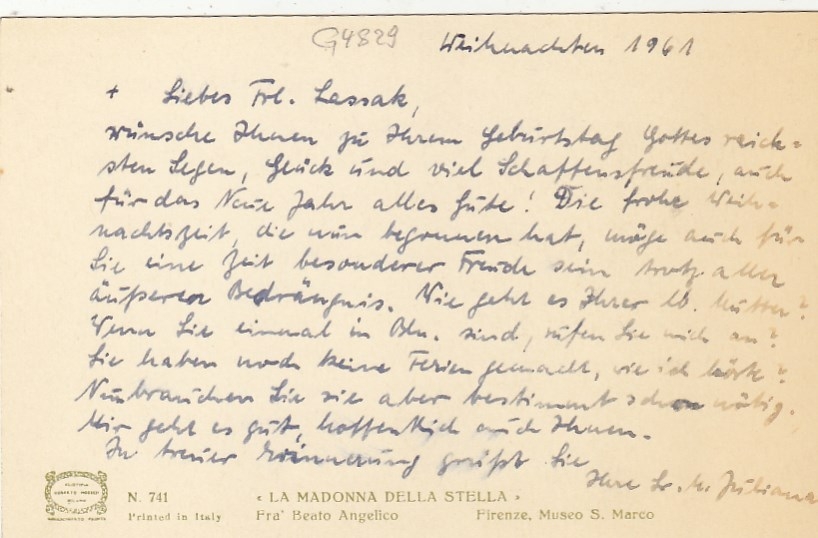 G4829
Weihnachten 1961
+ Liebes Frl. Lassak,
wünsche Ihnen zu Ihrem Geburtstag Gottes reich=
sten Segen, Glück und viel Schaffensfreude, auch
für das Neue Jahr alles Gute! Die frohe Weih=
nachtszeit, die nun begonnen hat, möge auch für
Sie eine Zeit besonderer Freude sein trotz aller
äußeren Bedrängnis. Wie geht es Ihrer lb. Mutter?
Wenn Sie einmal in Bln. sind, rufen Sie mich an?
Sie haben noch keine Ferien gemacht, wie ich hörte?
Nun brauchen Sie sie aber bestimmt schon nötig.
Mir geht es gut, hoffentlich auch Ihnen.
In treuer Erinnerung grüßt Sie
Ihre Sr. M. Juliana
N. 741
« LA MADONNA DELLA STELLA »
Printed in Italy
Fra' Beato Angelico
Firenze, Museo S. Marco